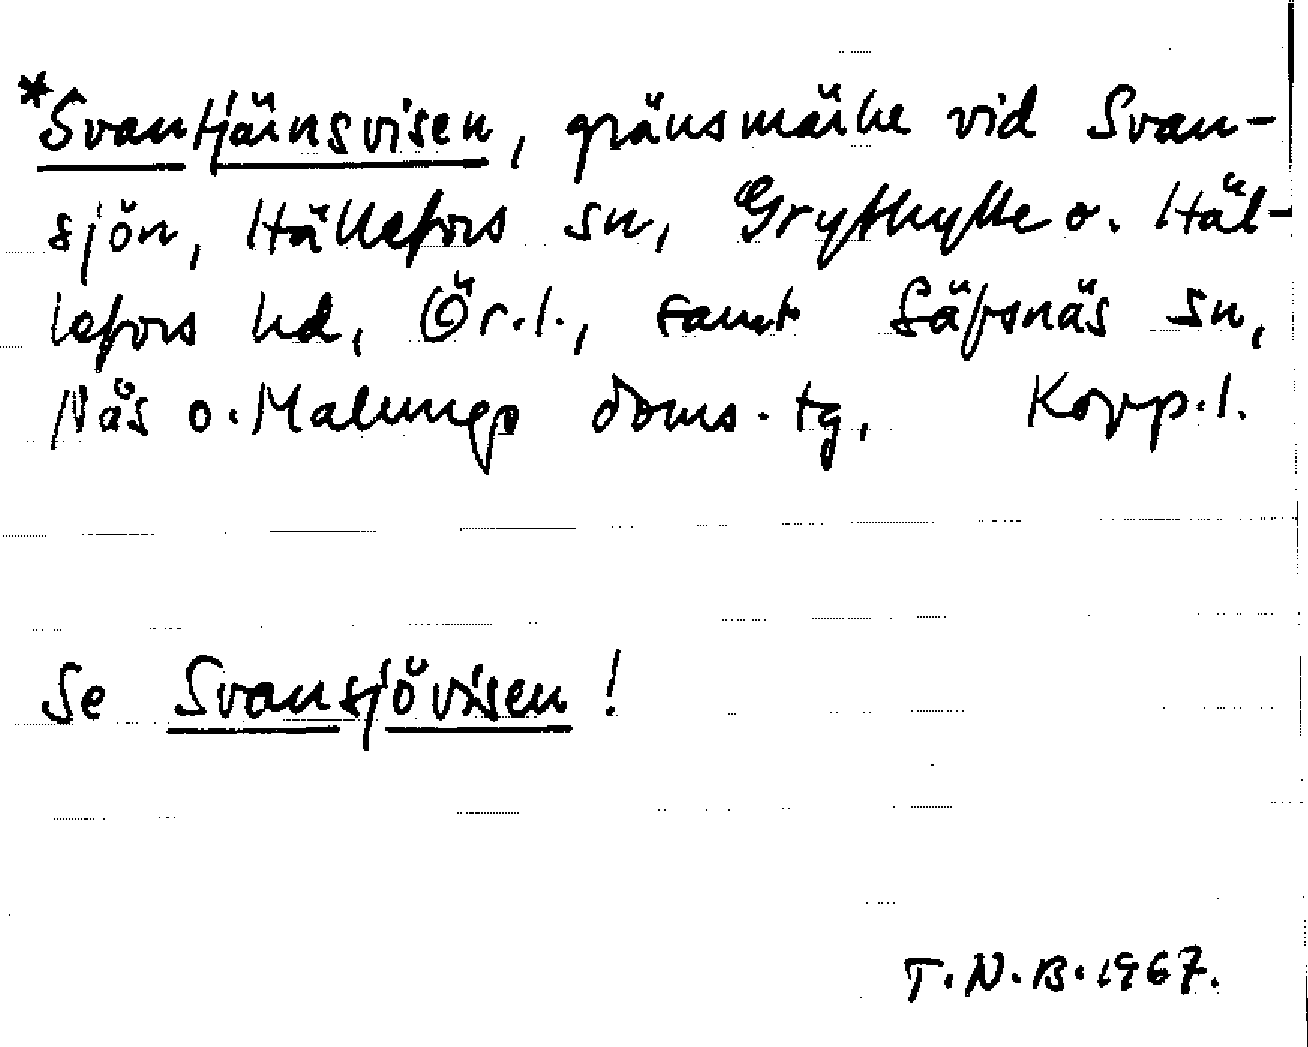 *Svantjärnsvisen, gränsmärke vid Svan-
sjön, Hällefors sn, Grythytte o. Häl-
lefors hd, Ör.l., samt Säfsnäs sn,
Nås o. Malungs doms.tg, Kopp.l.
Se Svansjövisen!
T.N.B. 1967.